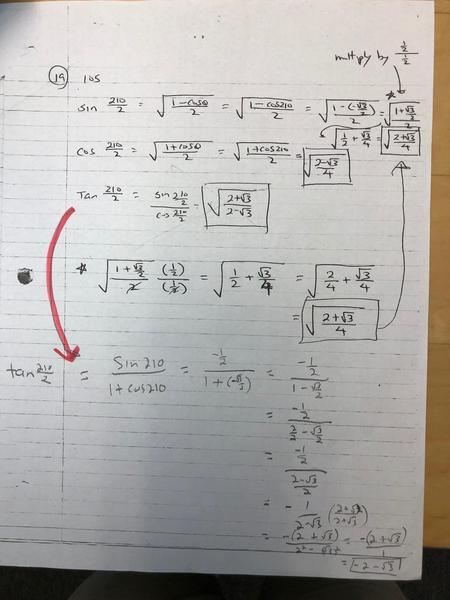 multiply by (1/2)/(1/2)
19 105
sin 210/2 = √((1-cosθ)/2) = √((1-cos210)/2) = √((1-(-√3/2))/2) = * √((1+√3/2)/2)
√(1/2 + √3/4) = √((2+√3)/4)
cos 210/2 = √((1+cosθ)/2) = √((1+cos210)/2) = √((2-√3)/4)
Tan 210/2 = (sin 210/2)/(cos 210/2) = √((2+√3)/(2-√3))
* √((1+√3/2)/2 (1/2)/(1/2)) = √(1/2 + √3/4) = √(2/4 + √3/4)
= √((2+√3)/4)
tan 210/2 = sin210/(1+cos210) = (-1/2)/(1+(-√3/2)) = (-1/2)/(1-√3/2)
= (-1/2)/(2/2-√3/2)
= (-1/2)/((2-√3)/2)
= -1/(2-√3) ((2+√3)/(2+√3))
= -(2+√3)/(2²-√3²) = -(2+√3)/1
= -2-√3